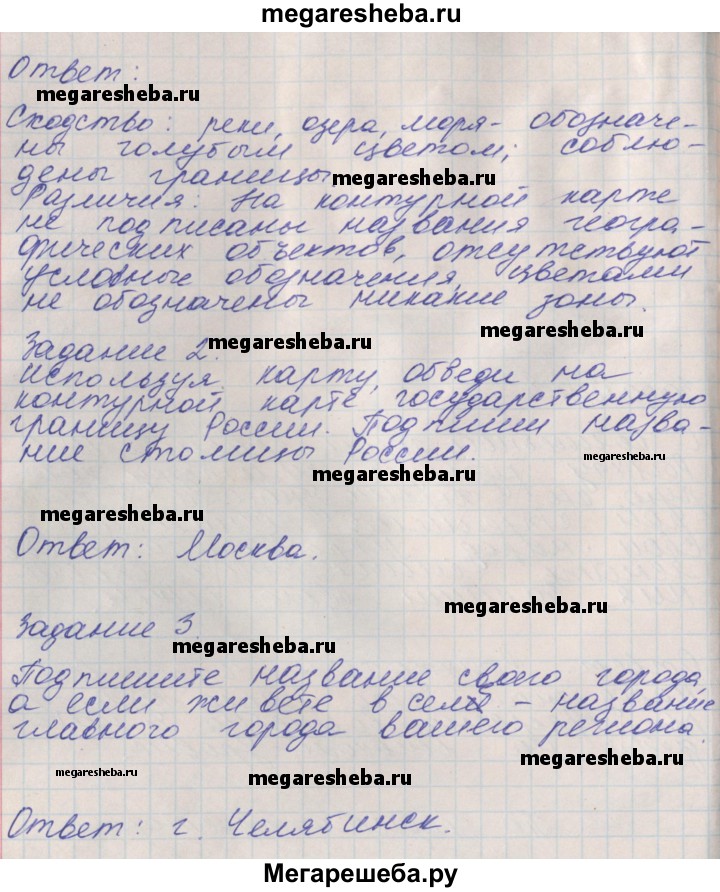 megaresheba.ru
Ответ:
megaresheba.ru
Сходство: реки, озера, моря - обозначе-
ны голубым цветом; соблю-
дены границы megaresheba.ru
Различия: На контурной карте
не подписаны названия геогра-
фических объектов, отсутствуют
условные обозначения, цветами
не обозначены никакие зоны.
Задание 2. megaresheba.ru megaresheba.ru
Используя карту, обведи на
контурной карте государственную
границу России. Подпиши назва-
ние столицы России. megaresheba.ru
megaresheba.ru
megaresheba.ru
Ответ: Москва.
megaresheba.ru
Задание 3.
megaresheba.ru
Подпишите название своего города,
а если живете в селе - название
главного города вашего региона.
megaresheba.ru megaresheba.ru megaresheba.ru
Ответ: г. Челябинск.
Мегарешеба.ру